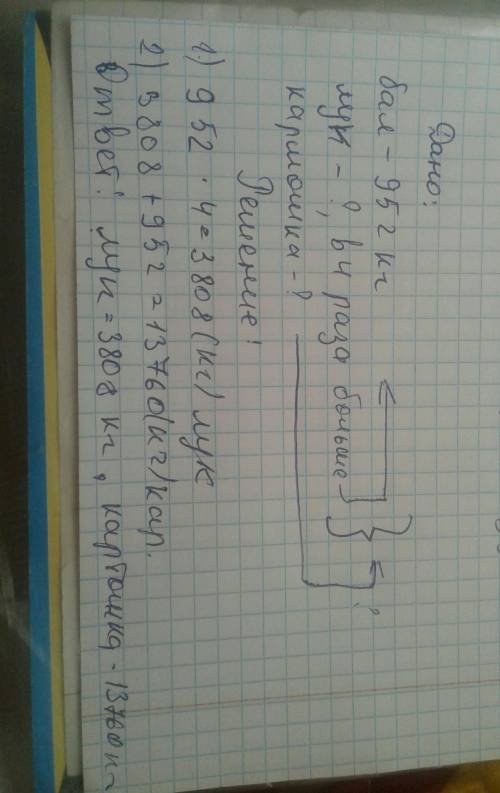 Дано:
бал - 952 кг
лук - ?, в 4 раза больше
кармошка - ? ?
Решение!
1) 952 · 4 = 3808 (кг) лук
2) 3808 + 952 = 13760 (кг) кар.
Ответ: лук = 3808 кг, картошка - 13760 кг